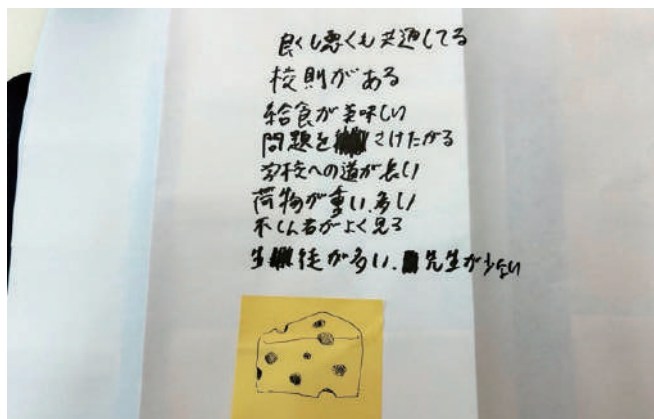 良くも悪くも共通してる
校則がある
給食が美味しい
問題を さけたがる
学校への道が長い
荷物が重い、多い
不しん者がよく見る
生徒が多い、先生が少ない